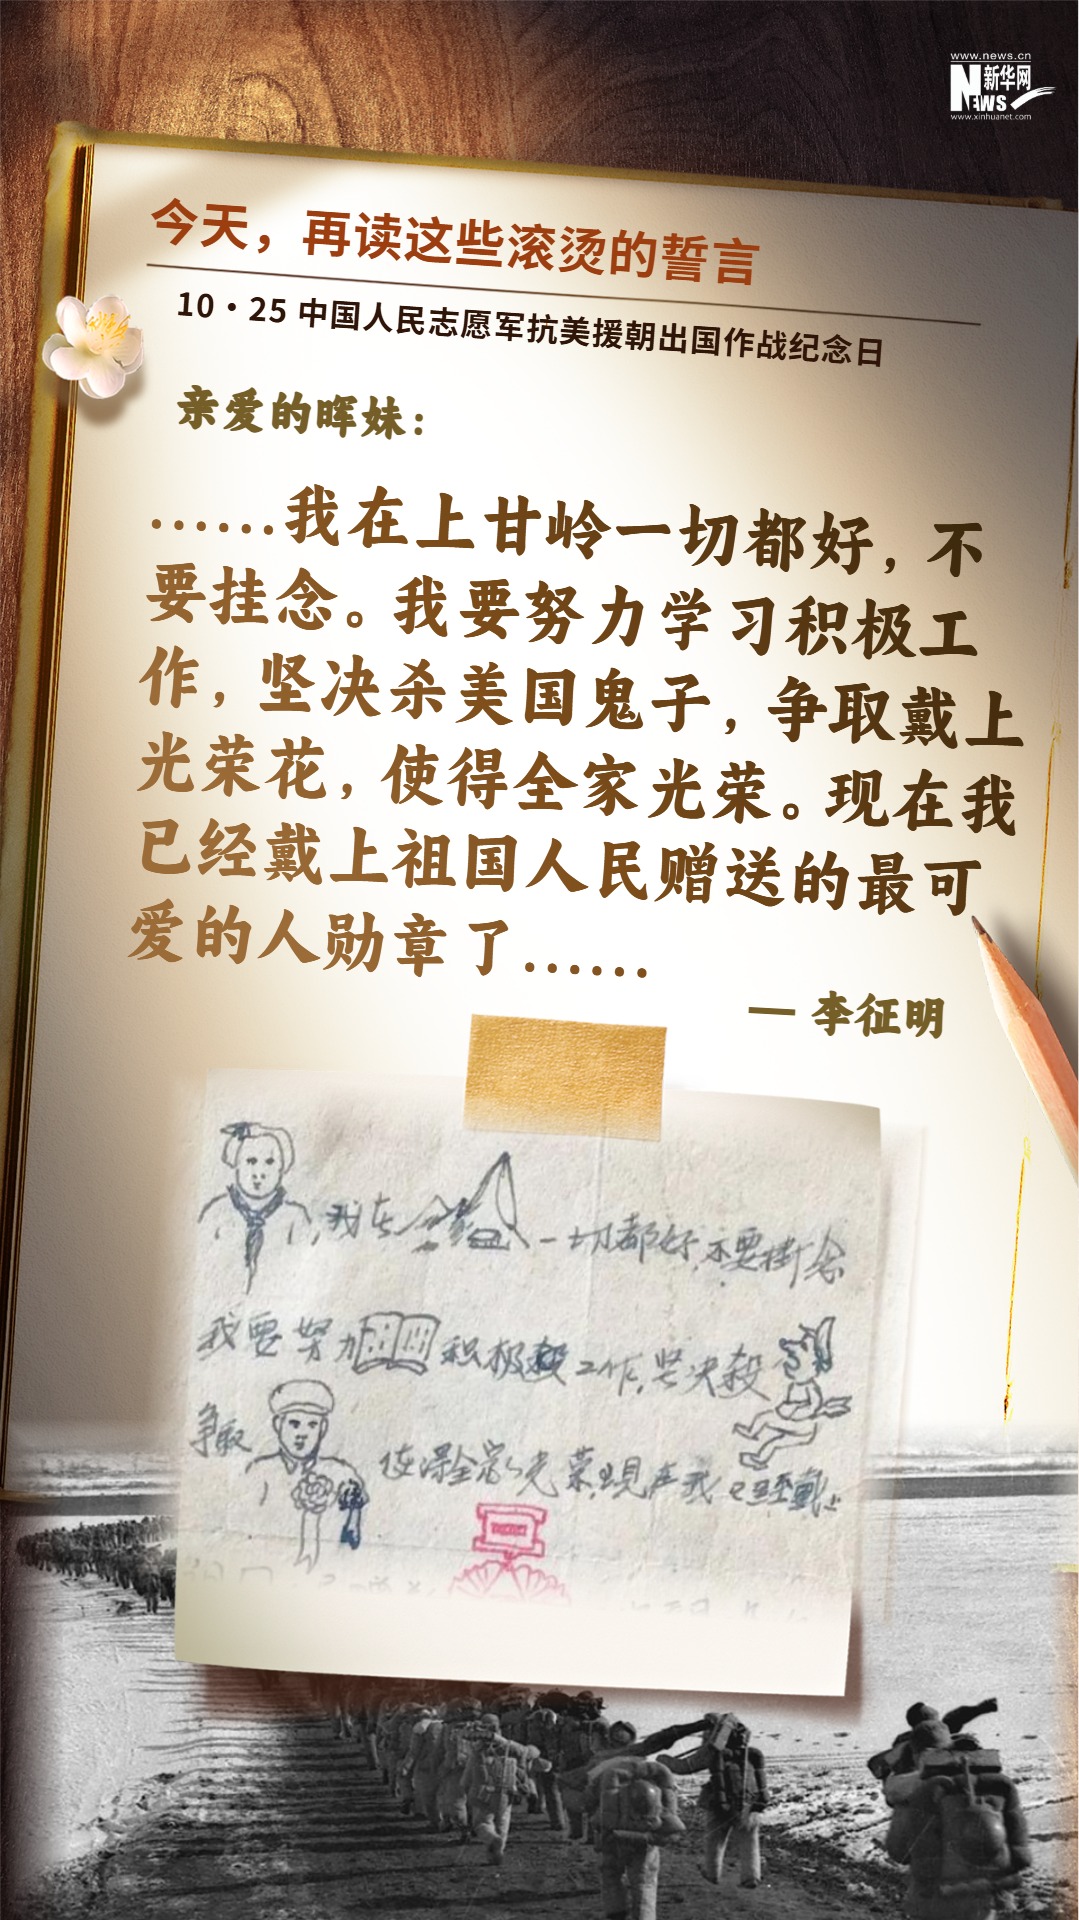 www.news.cn
新华网
NEWS
www.xinhuanet.com
今天，再读这些滚烫的誓言
10·25 中国人民志愿军抗美援朝出国作战纪念日
亲爱的晖妹：
……我在上甘岭一切都好，不
要挂念。我要努力学习积极工
作，坚决杀美国鬼子，争取戴上
光荣花，使得全家光荣。现在我
已经戴上祖国人民赠送的最可
爱的人勋章了……
— 李征明
，我在
一切都好，不要掛念
我要努力
积极
工作，坚决殺
争取
使得全家光荣，現在我已经戴上